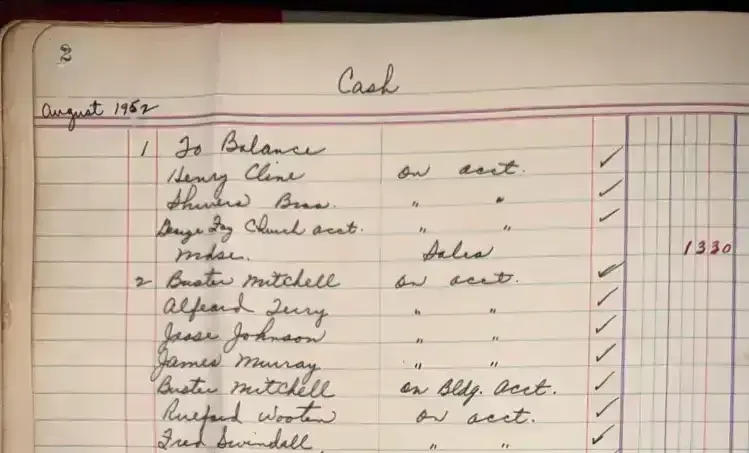 2
Cash
August 1952
1 To Balance
Henry Cline on acct. ✓
Shivers Bros. " " ✓
Church acct. " " ✓
Mdse. Sales 1330
2 Buster Mitchell on acct. ✓
Alfeard Terry " " ✓
Jesse Johnson " " ✓
James Murray " " ✓
Buster Mitchell on Bldg. Acct. ✓
Rueford Wooten on acct. ✓
Fred Swindall " " ✓